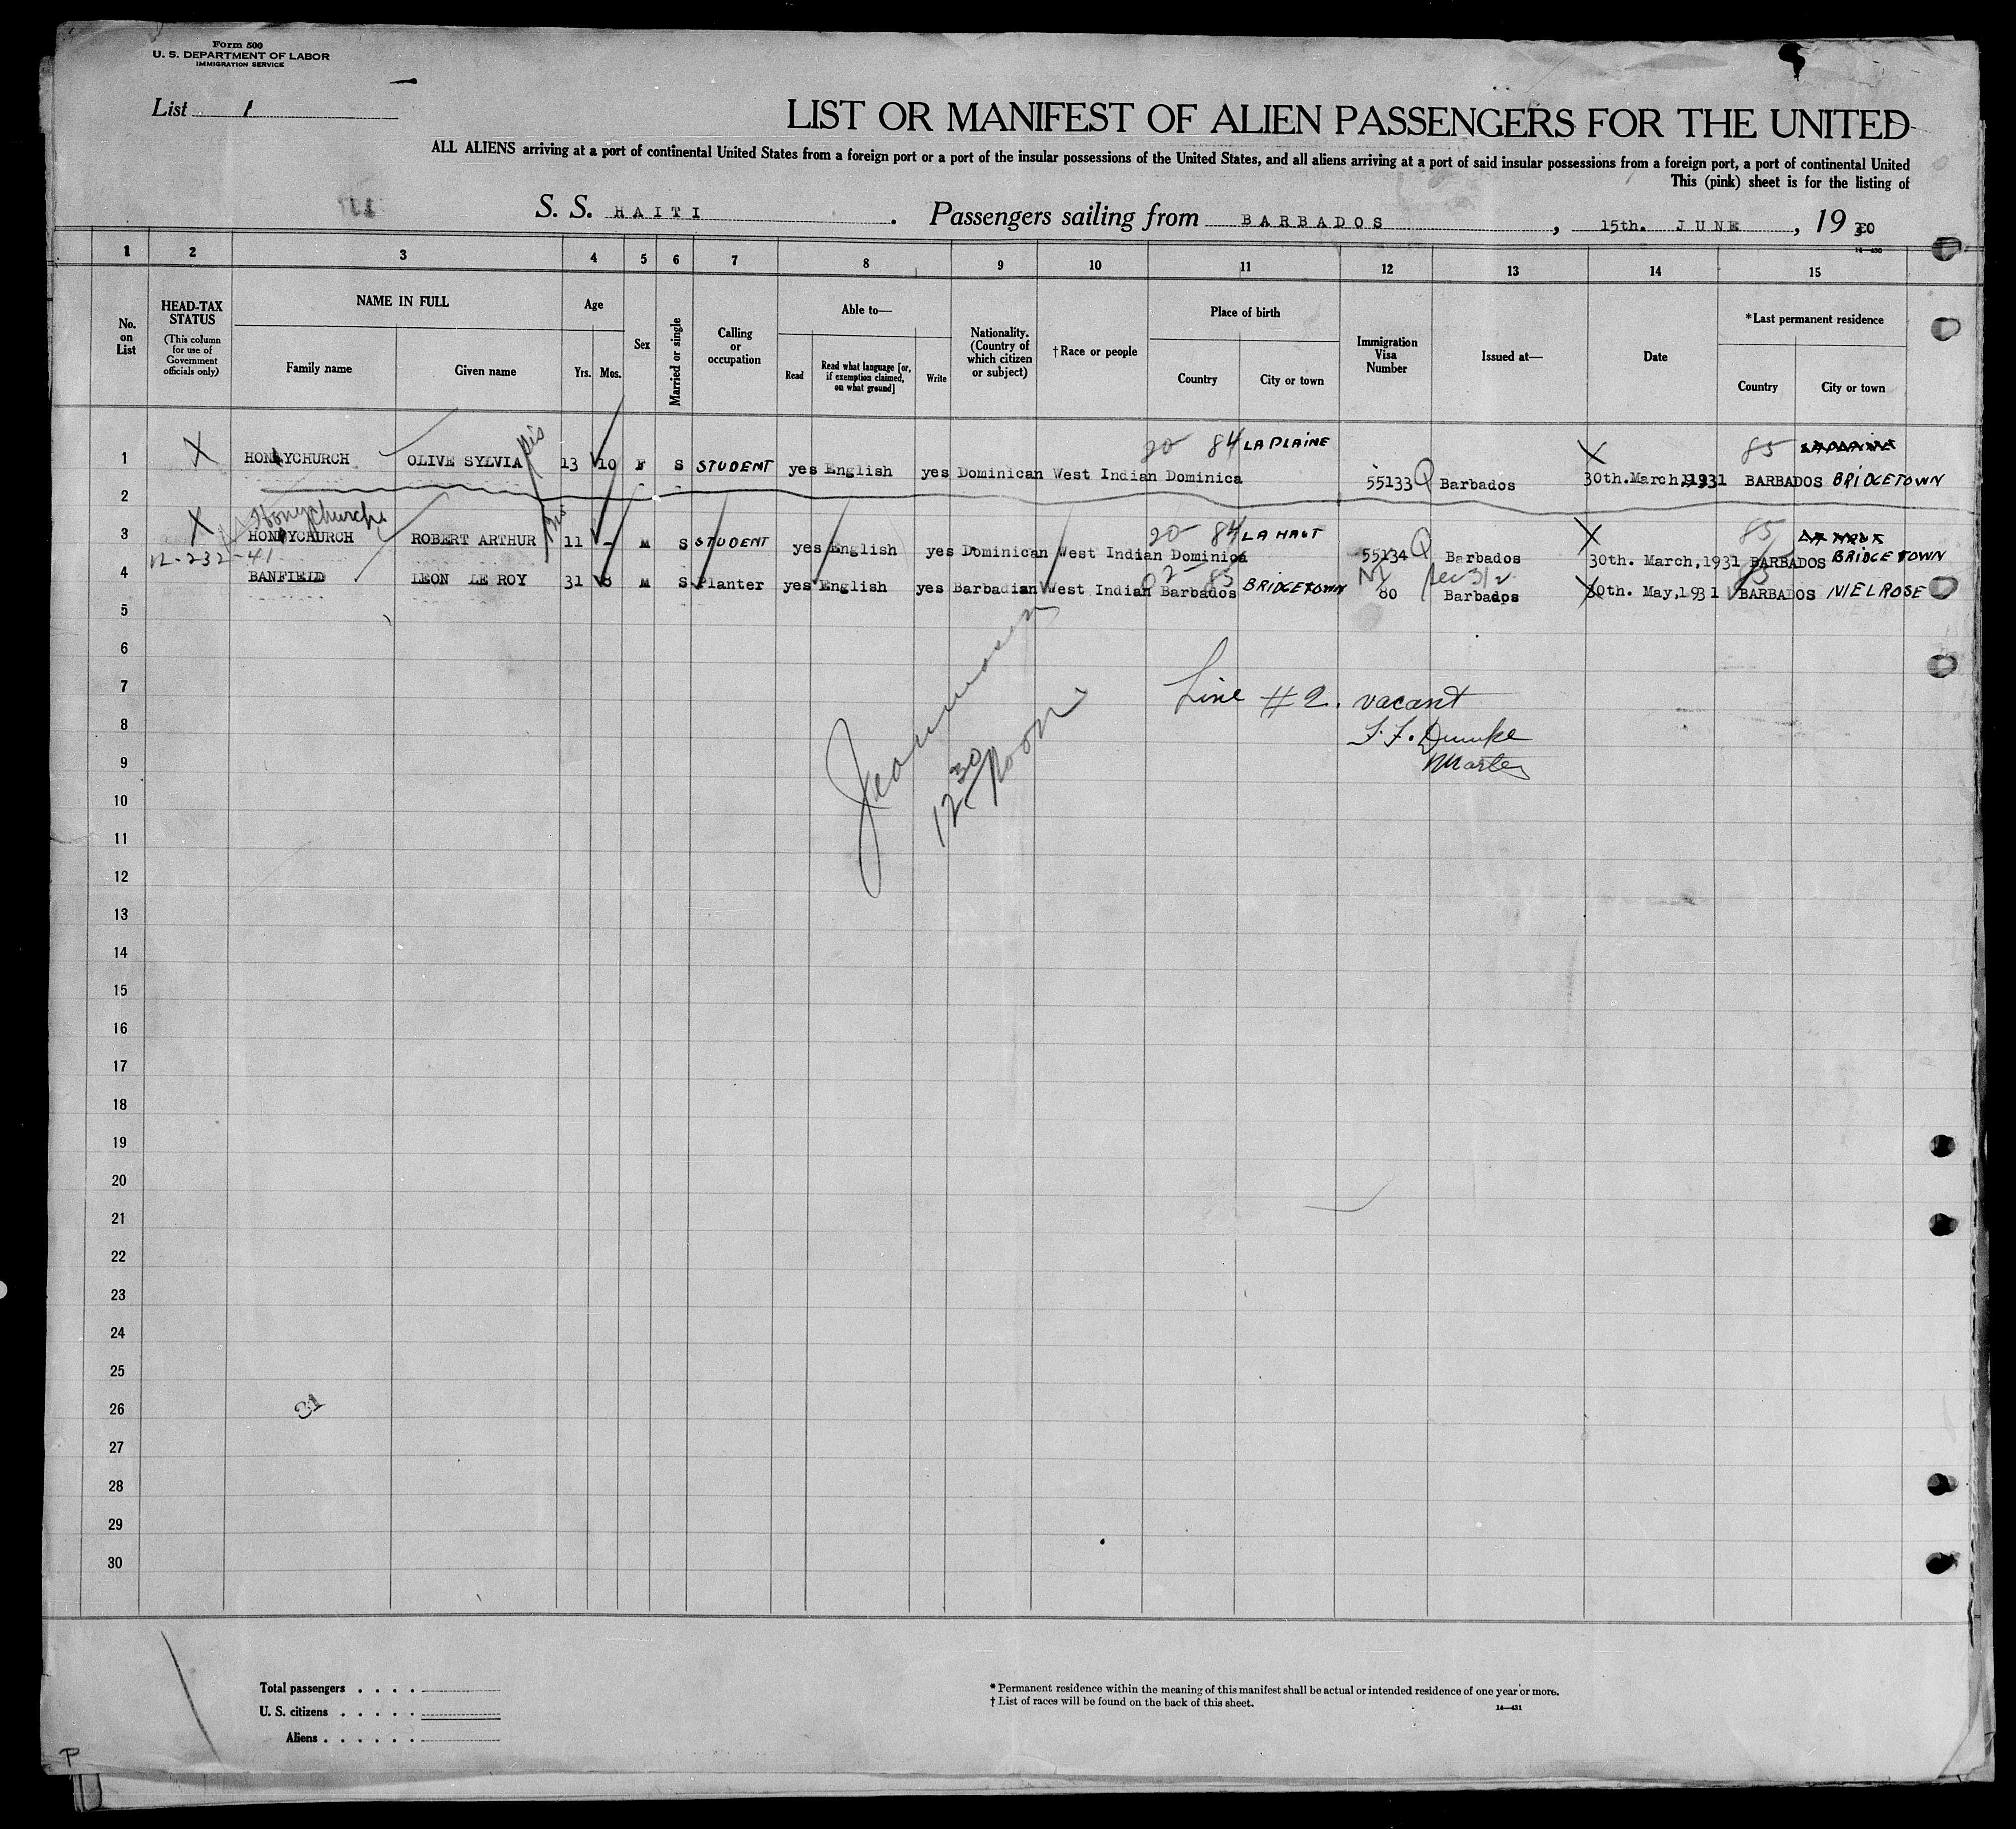 Form 500
U. S. DEPARTMENT OF LABOR
IMMIGRATION SERVICE
List 1
LIST OR MANIFEST OF ALIEN PASSENGERS FOR THE UNITED
ALL ALIENS arriving at a port of continental United States from a foreign port or a port of the insular possessions of the United States, and all aliens arriving at a port of said insular possessions from a foreign port, a port of continental United
This (pink) sheet is for the listing of
S. S. HAITI. Passengers sailing from BARBADOS, 15th. JUNE, 19
14—430
1 2 3 4 5 6 7 8 9 10 11 12 13 14 15
No. on List
HEAD-TAX STATUS
(This column for use of Government officials only)
NAME IN FULL
Family name
Given name
Age
Yrs. Mos.
Sex
Married or single
Calling or occupation
Able to—
Read
Read what language [or, if exemption claimed, on what ground]
Write
Nationality. (Country of which citizen or subject)
†Race or people
Place of birth
Country
City or town
Immigration Visa Number
Issued at—
Date
*Last permanent residence
Country
City or town
20 84 LA PLAINE 85
1 X HONYCHURCH OLIVE SYLVIA 13 10 F S STUDENT yes English yes Dominican West Indian Dominica 55133 Q Barbados 30th.March,1931 BARBADOS BRIDGETOWN
2
Honychurch
20 84 LA HAUT 85
3 X HONYCHURCH ROBERT ARTHUR 11 - M S STUDENT yes English yes Dominican West Indian Dominica 55134 Q Barbados 30th. March,1931 BARBADOS BRIDGETOWN
12-232-41
02 85
4 BANFIELD LEON LE ROY 31 8 M S Planter yes English yes Barbadian West Indian Barbados BRIDGETOWN 80 Barbados 30th. May,1931 BARBADOS MELROSE
5
6
7
Line #2. vacant
8
F. F. Dumke
9
Master
12 30 noon
10
11
12
13
14
15
16
17
18
19
20
21
22
23
24
25
26
31
27
28
29
30
Total passengers . . . .
U. S. citizens . . . . .
Aliens . . . . . .
* Permanent residence within the meaning of this manifest shall be actual or intended residence of one year or more.
† List of races will be found on the back of this sheet.
14—431
P